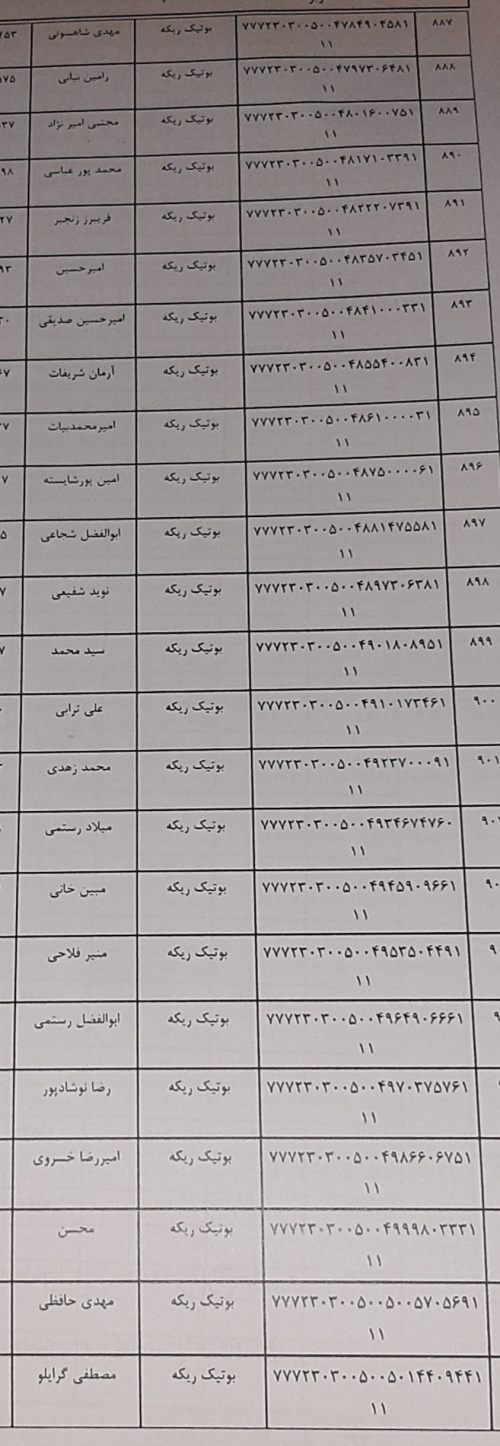 ۸۸۷ ۷۷۷۲۳۰۳۰۰۵۰۰۴۷۸۴۹۰۴۵۸۱ بوتیک ریکه مهدی شاهسونی
۱۱
۸۸۸ ۷۷۷۲۳۰۳۰۰۵۰۰۴۷۹۷۳۰۶۴۸۱ بوتیک ریکه رامین بیاتی
۱۱
۸۸۹ ۷۷۷۲۳۰۳۰۰۵۰۰۴۸۰۱۶۰۰۷۵۱ بوتیک ریکه مجتبی امیر نژاد
۱۱
۸۹۰ ۷۷۷۲۳۰۳۰۰۵۰۰۴۸۱۷۱۰۳۳۹۱ بوتیک ریکه محمد پور عباسی
۱۱
۸۹۱ ۷۷۷۲۳۰۳۰۰۵۰۰۴۸۲۲۲۰۷۳۹۱ بوتیک ریکه فریبرز زنجیر
۱۱
۸۹۲ ۷۷۷۲۳۰۳۰۰۵۰۰۴۸۳۵۷۰۳۴۵۱ بوتیک ریکه امیرحسین
۱۱
۸۹۳ ۷۷۷۲۳۰۳۰۰۵۰۰۴۸۴۱۰۰۰۳۳۱ بوتیک ریکه امیرحسین صدیقی
۱۱
۸۹۴ ۷۷۷۲۳۰۳۰۰۵۰۰۴۸۵۵۴۰۰۸۳۱ بوتیک ریکه آرمان شریفات
۱۱
۸۹۵ ۷۷۷۲۳۰۳۰۰۵۰۰۴۸۶۱۰۰۰۰۳۱ بوتیک ریکه امیرمحمدبیات
۱۱
۸۹۶ ۷۷۷۲۳۰۳۰۰۵۰۰۴۸۷۵۰۰۰۰۶۱ بوتیک ریکه امین پورشایسته
۱۱
۸۹۷ ۷۷۷۲۳۰۳۰۰۵۰۰۴۸۸۱۴۷۵۵۸۱ بوتیک ریکه ابوالفضل شجاعی
۱۱
۸۹۸ ۷۷۷۲۳۰۳۰۰۵۰۰۴۸۹۷۳۰۶۳۸۱ بوتیک ریکه نوید شفیعی
۱۱
۸۹۹ ۷۷۷۲۳۰۳۰۰۵۰۰۴۹۰۱۸۰۸۹۵۱ بوتیک ریکه سید محمد
۱۱
۹۰۰ ۷۷۷۲۳۰۳۰۰۵۰۰۴۹۱۰۱۷۳۴۶۱ بوتیک ریکه علی ترابی
۱۱
۹۰۱ ۷۷۷۲۳۰۳۰۰۵۰۰۴۹۲۳۷۰۰۰۹۱ بوتیک ریکه محمد زهدی
۱۱
۷۷۷۲۳۰۳۰۰۵۰۰۴۹۳۴۶۷۴۷۶۰ بوتیک ریکه میلاد رستمی
۱۱
۷۷۷۲۳۰۳۰۰۵۰۰۴۹۴۵۹۰۹۶۶۱ بوتیک ریکه مبین خانی
۱۱
۷۷۷۲۳۰۳۰۰۵۰۰۴۹۵۳۵۰۴۴۹۱ بوتیک ریکه منیر فلاحی
۱۱
۷۷۷۲۳۰۳۰۰۵۰۰۴۹۶۴۹۰۶۶۶۱ بوتیک ریکه ابوالفضل رستمی
۱۱
۷۷۷۲۳۰۳۰۰۵۰۰۴۹۷۰۳۷۵۷۶۱ بوتیک ریکه رضا نوشادپور
۱۱
۷۷۷۲۳۰۳۰۰۵۰۰۴۹۸۶۶۰۶۷۵۱ بوتیک ریکه امیررضا خسروی
۱۱
۷۷۷۲۳۰۳۰۰۵۰۰۴۹۹۹۸۰۳۳۳۱ بوتیک ریکه محسن
۱۱
۷۷۷۲۳۰۳۰۰۵۰۰۵۰۰۵۷۰۵۶۹۱ بوتیک ریکه مهدی حافظی
۱۱
۷۷۷۲۳۰۳۰۰۵۰۰۵۰۱۴۴۰۹۴۴۱ بوتیک ریکه مصطفی گرایلو
۱۱